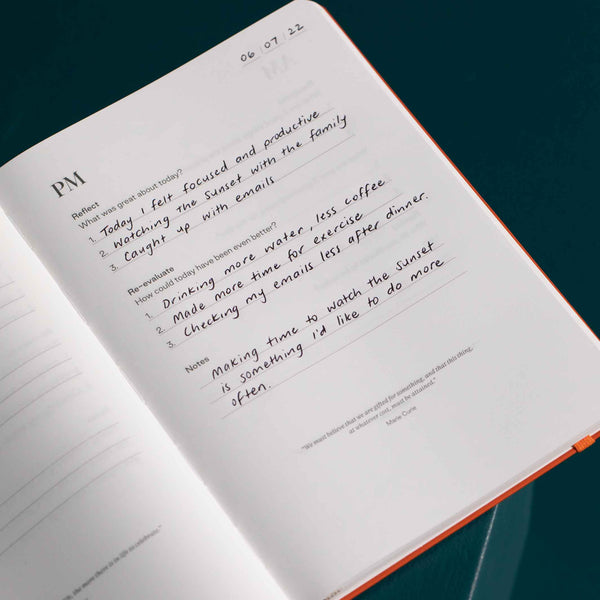 06 / 07 / 22
PM
Reflect
What was great about today?
1. Today I felt focused and productive
2. Watching the sunset with the family
3. Caught up with emails
Re-evaluate
How could today have been even better?
1. Drinking more water, less coffee
2. Made more time for exercise
3. Checking my emails less after dinner.
Notes
Making time to watch the sunset
is something I'd like to do more
often.
"We must believe that we are gifted for something, and that this thing,
at whatever cost, must be attained."
Marie Curie
the more there is in life to celebrate."